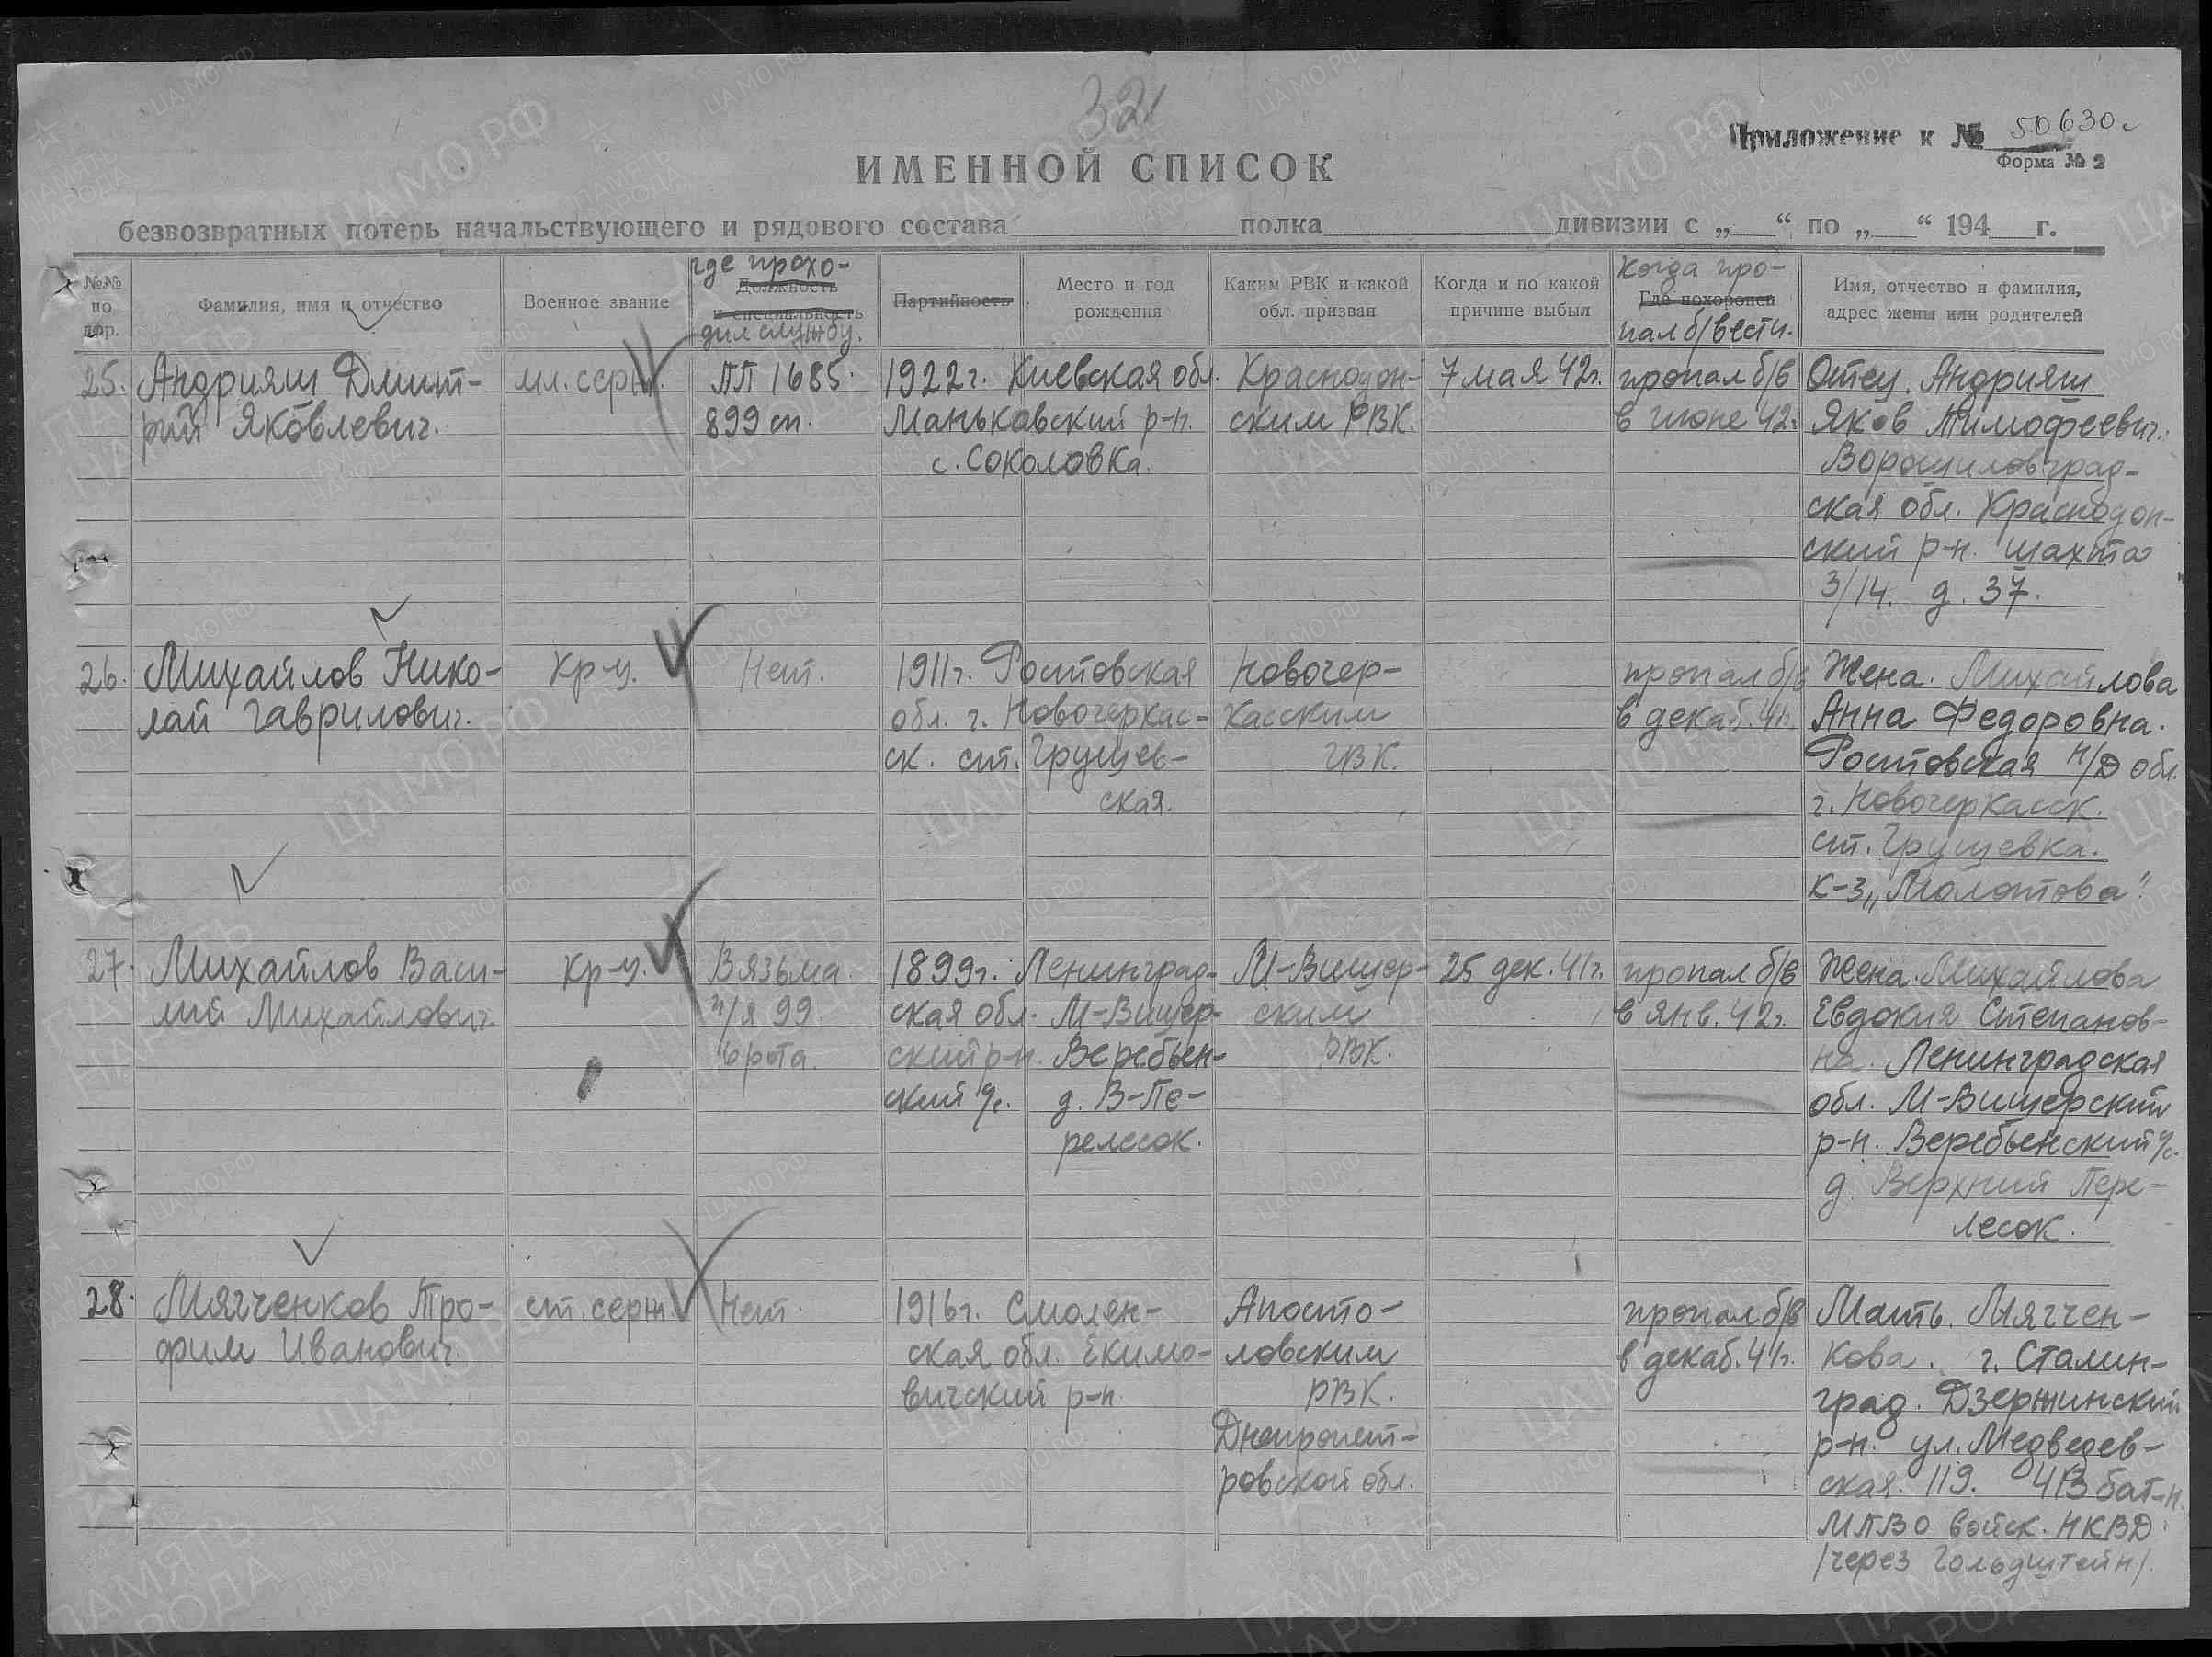 321
Приложение к № 50630с
Форма № 2
ИМЕННОЙ СПИСОК
безвозвратных потерь начальствующего и рядового состава полка дивизии с „ “ по „ “ 194 г.
№№ по пор.
Фамилия, имя и отчество
Военное звание
где прохо-
Должность
и специальность
дил службу.
Партийность
Место и год
рождения
Каким РВК и какой
обл. призван
Когда и по какой
причине выбыл
Когда про-
Где похоронен
пал б/вести.
Имя, отчество и фамилия,
адрес жены или родителей
25.
Андрияш Дмит-
рий Яковлевич.
мл. серж.
ПП 1685.
899 сп.
1922г. Киевская обл.
Маньковский р-н.
с. Соколовка.
Краснодон-
ским РВК.
7 мая 42г.
пропал б/в
в июне 42г.
Отец. Андрияш
Яков Тимофеевич.
Ворошиловград-
ская обл. Краснодон-
ский р-н. шахта
3/14. д. 37.
26.
Михайлов Нико-
лай Гаврилович.
Кр-ц.
Нет.
1911г. Ростовская
обл. г. Новочеркас-
ск. ст. Грушев-
ская.
Новочер-
касским
ГВК.
пропал б/в
в декаб. 41г.
Жена. Михайлова
Анна Федоровна.
Ростовская н/Д обл.
г. Новочеркасск.
ст. Грушевка.
к-з „Молотова“
27.
Михайлов Васи-
лий Михайлович.
Кр-ц.
Вязьма.
п/я 99.
6 рота.
1899г. Ленинград-
ская обл. М-Вишер-
ский р-н. Веребьен-
ский с/с. д. В-Пе-
релесок.
М-Вишер-
ским
РВК.
25 дек. 41г.
пропал б/в
в янв. 42г.
Жена. Михайлова
Евдокия Степанов-
на. Ленинградская
обл. М-Вишерский
р-н. Веребьенский с/с.
д. Верхний Пере-
лесок.
28.
Мягченков Тро-
фим Иванович.
ст. серж.
Нет.
1916г. Смолен-
ская обл. Екимо-
вичский р-н.
Апосто-
ловским
РВК.
Днепропет-
ровской обл.
пропал б/в
в декаб. 41г.
Мать. Мягчен-
кова. г. Сталин-
град. Дзержинский
р-н. ул. Медведев-
ская. 119. 413 бат-н.
МПВО войск. НКВД.
/через Гольдштейн/.
ЦАМО РФ
ПАМЯТЬ НАРОДА